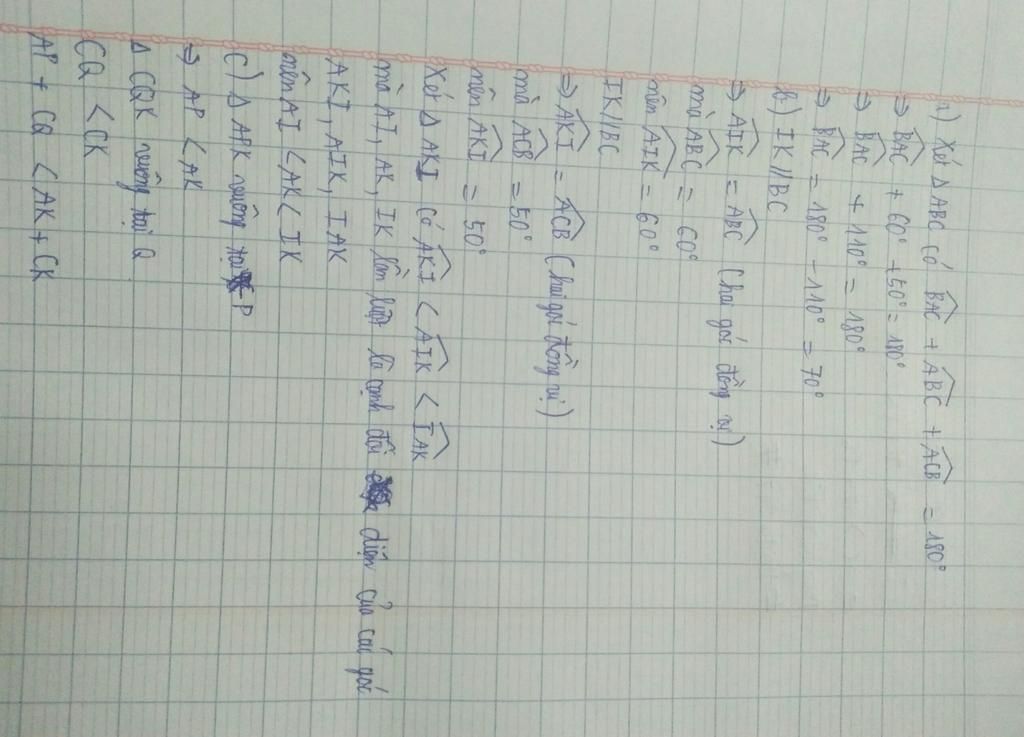 a) Xét ΔABC có \widehat{BAC} + \widehat{ABC} + \widehat{ACB} = 180°
⇒ \widehat{BAC} + 60° + 50° = 180°
⇒ \widehat{BAC} + 110° = 180°
⇒ \widehat{BAC} = 180° - 110° = 70°
b) IK//BC
⇒ \widehat{AIK} = \widehat{ABC} (hai góc đồng vị)
mà \widehat{ABC} = 60°
nên \widehat{AIK} = 60°
IK//BC
⇒ \widehat{AKI} = \widehat{ACB} (hai góc đồng vị)
mà \widehat{ACB} = 50°
nên \widehat{AKI} = 50°
Xét Δ AKI có \widehat{AKI} < \widehat{AIK} < \widehat{IAK}
mà AI, AK, IK lần lượt là cạnh đối diện của các góc
AKI, AIK, IAK
nên AI < AK < IK
C) Δ APK vuông tại P
⇒ AP < AK
Δ CQK vuông tại Q
CQ < CK
AP + CQ < AK + CK